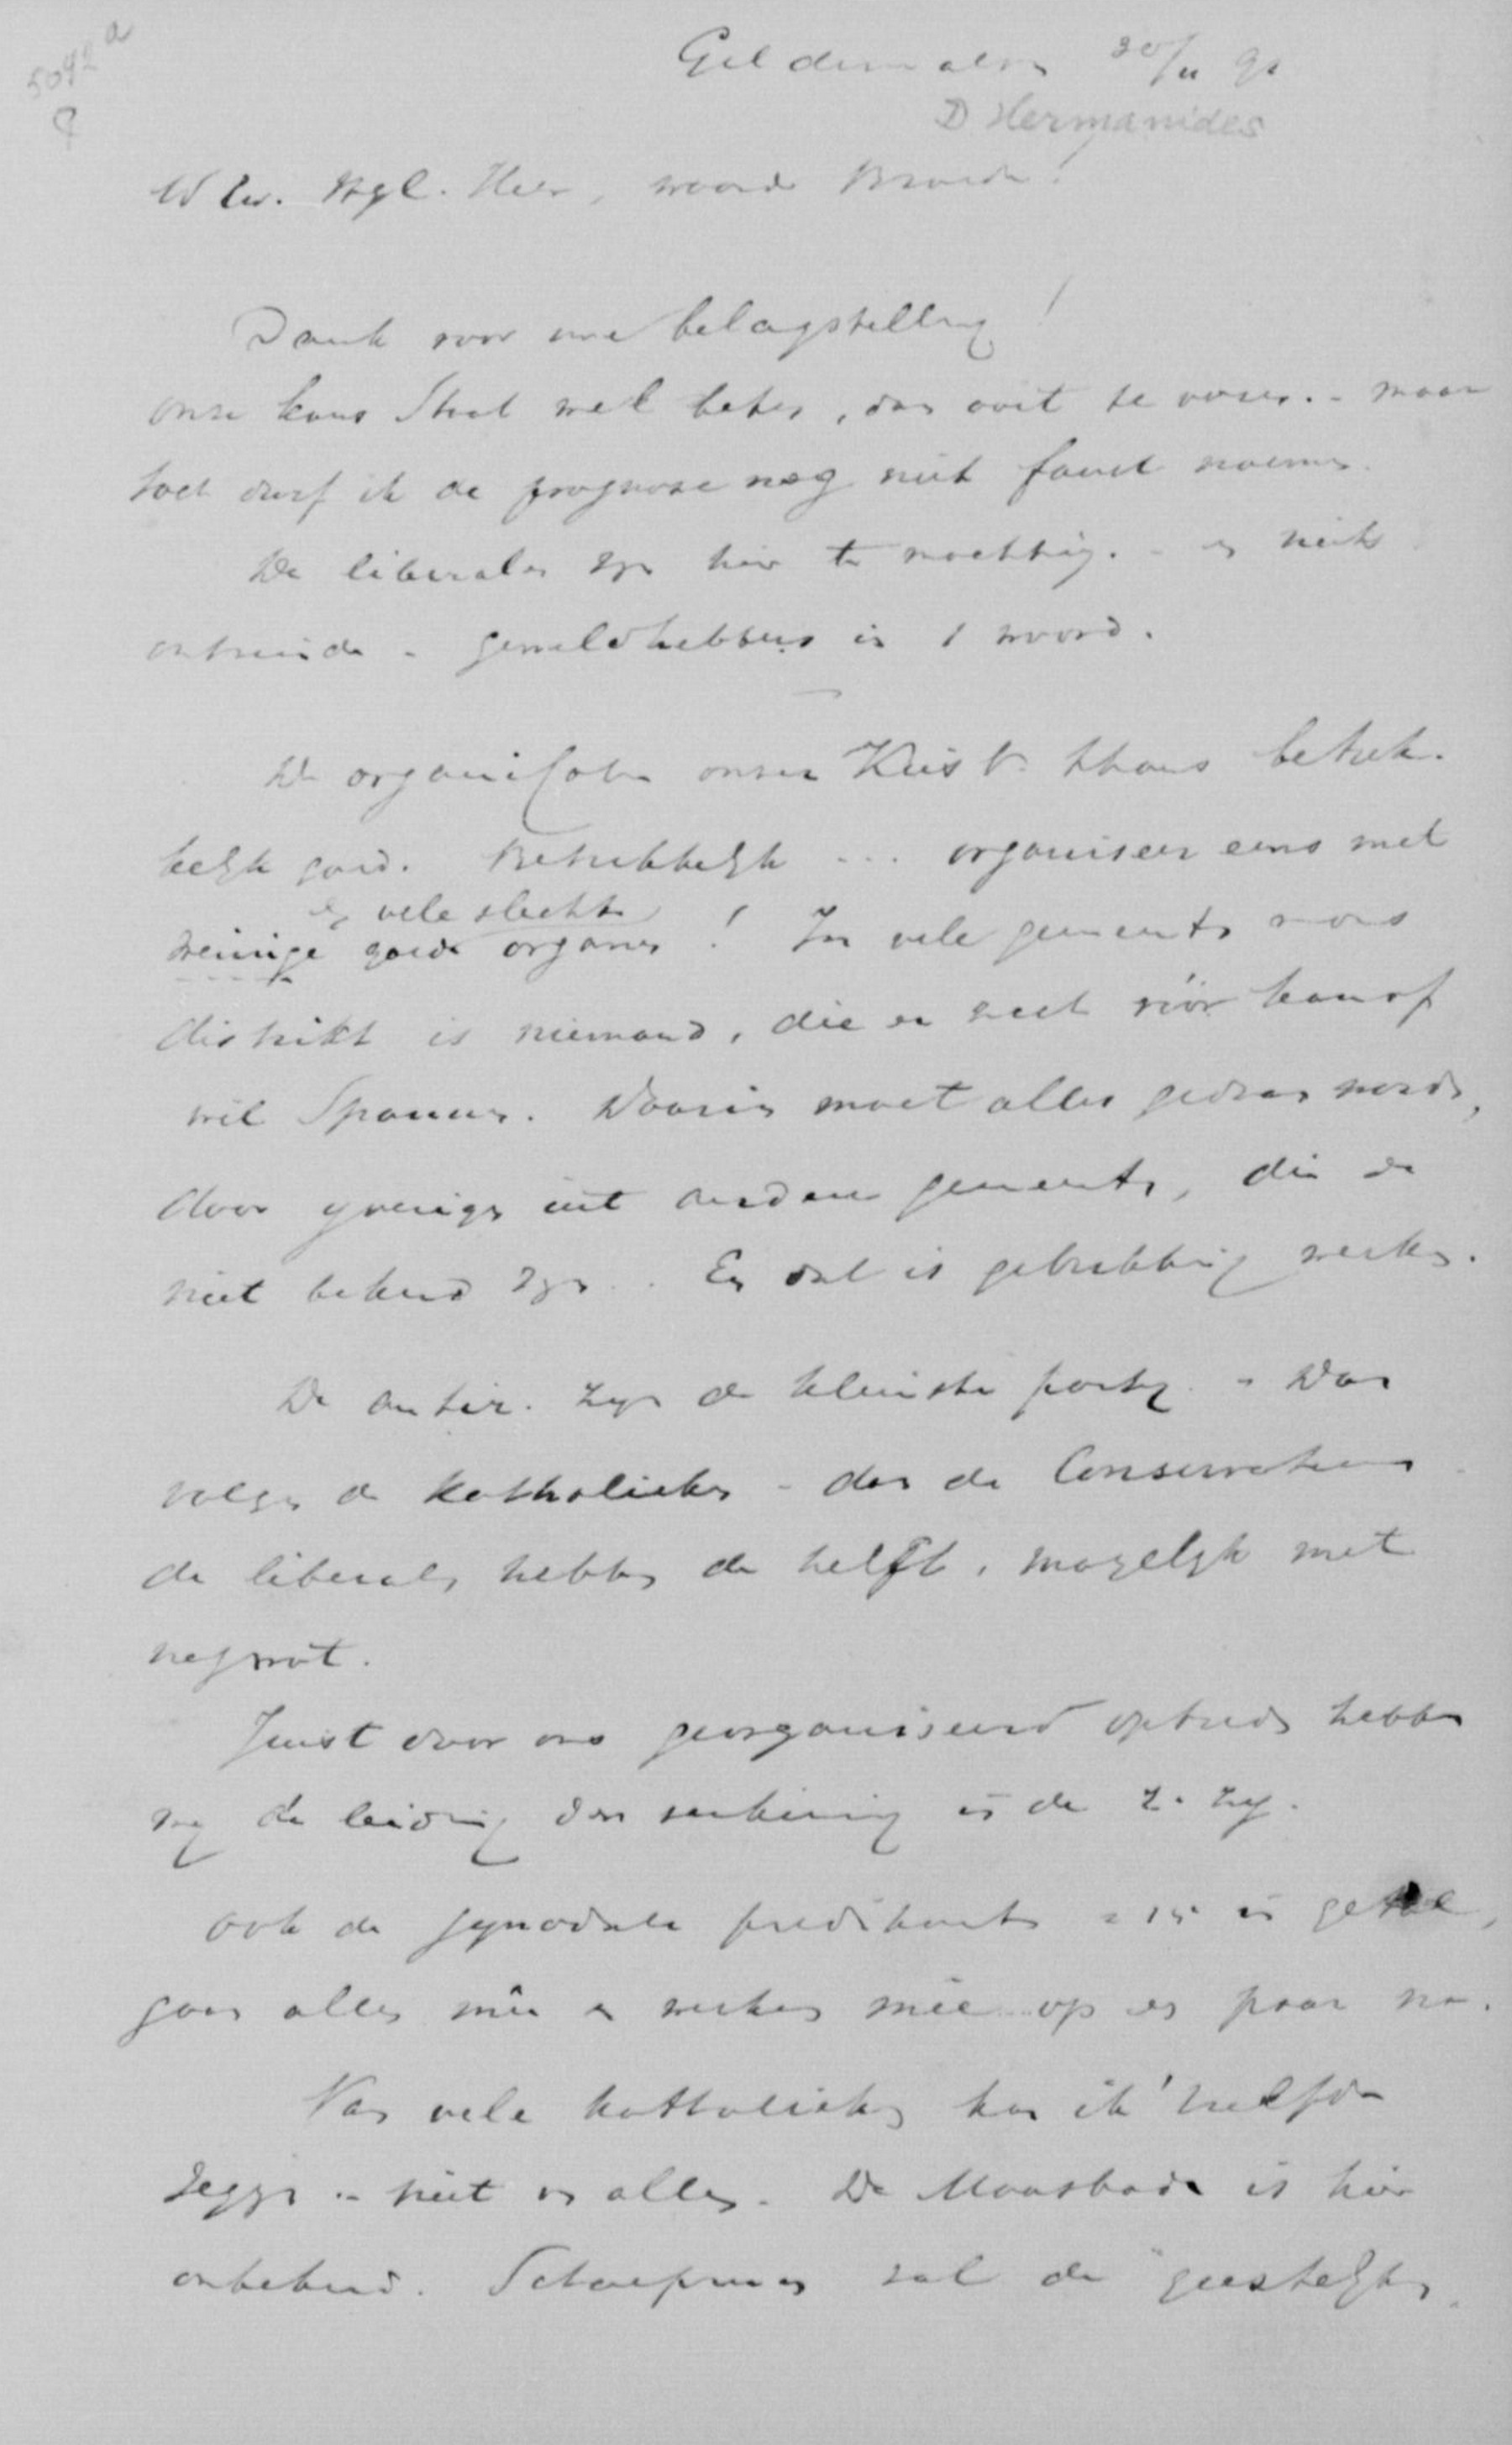 5042 a
Geldermalsen 30/11 91
D Hermanides
W Ew. Hgl. Heer, waarde Broeder!
Dank voor uwe belangstelling!
onze kans staat wel beter, dan ooit te voren. - maar
toch durf ik de prognose nog niet faust noemen.
De liberalen zyn hier te machtig. - en niets
ontziende - geweldhebbers in 1 woord.
De organisatie onzer Kiesv. thans betrek-
kelyk goed. Betrekkelyk ... organiseer eens met
en vele slechte
weinige goede organen! In vele gemeenten v ons
distrikt is niemand, die er zich vóór kan of
wil spannen. Daarin moet alles gedaan worden,
door yverigen uit andere gemeenten, die er
niet bekend zyn. En dat is gebrekkig werken.
De antir. zyn de kleinste party. - Dan
volgen de Katholieken - dan de Conservatieven
de liberalen hebben de helft, mogelyk met
nog wat.
Juist door ons georganiseerd optreden hebben
wy de leiding der verkiezing in de z. zy.
ook de synodale predikanten = 15 in getal,
gaan allen mêe en werken mêe op een paar na.
Van vele katholieken kan ik 'tzelfde
zeggen - niet v allen. De Maasbode is hier
onbekend. Schaepman zal de geestelyken